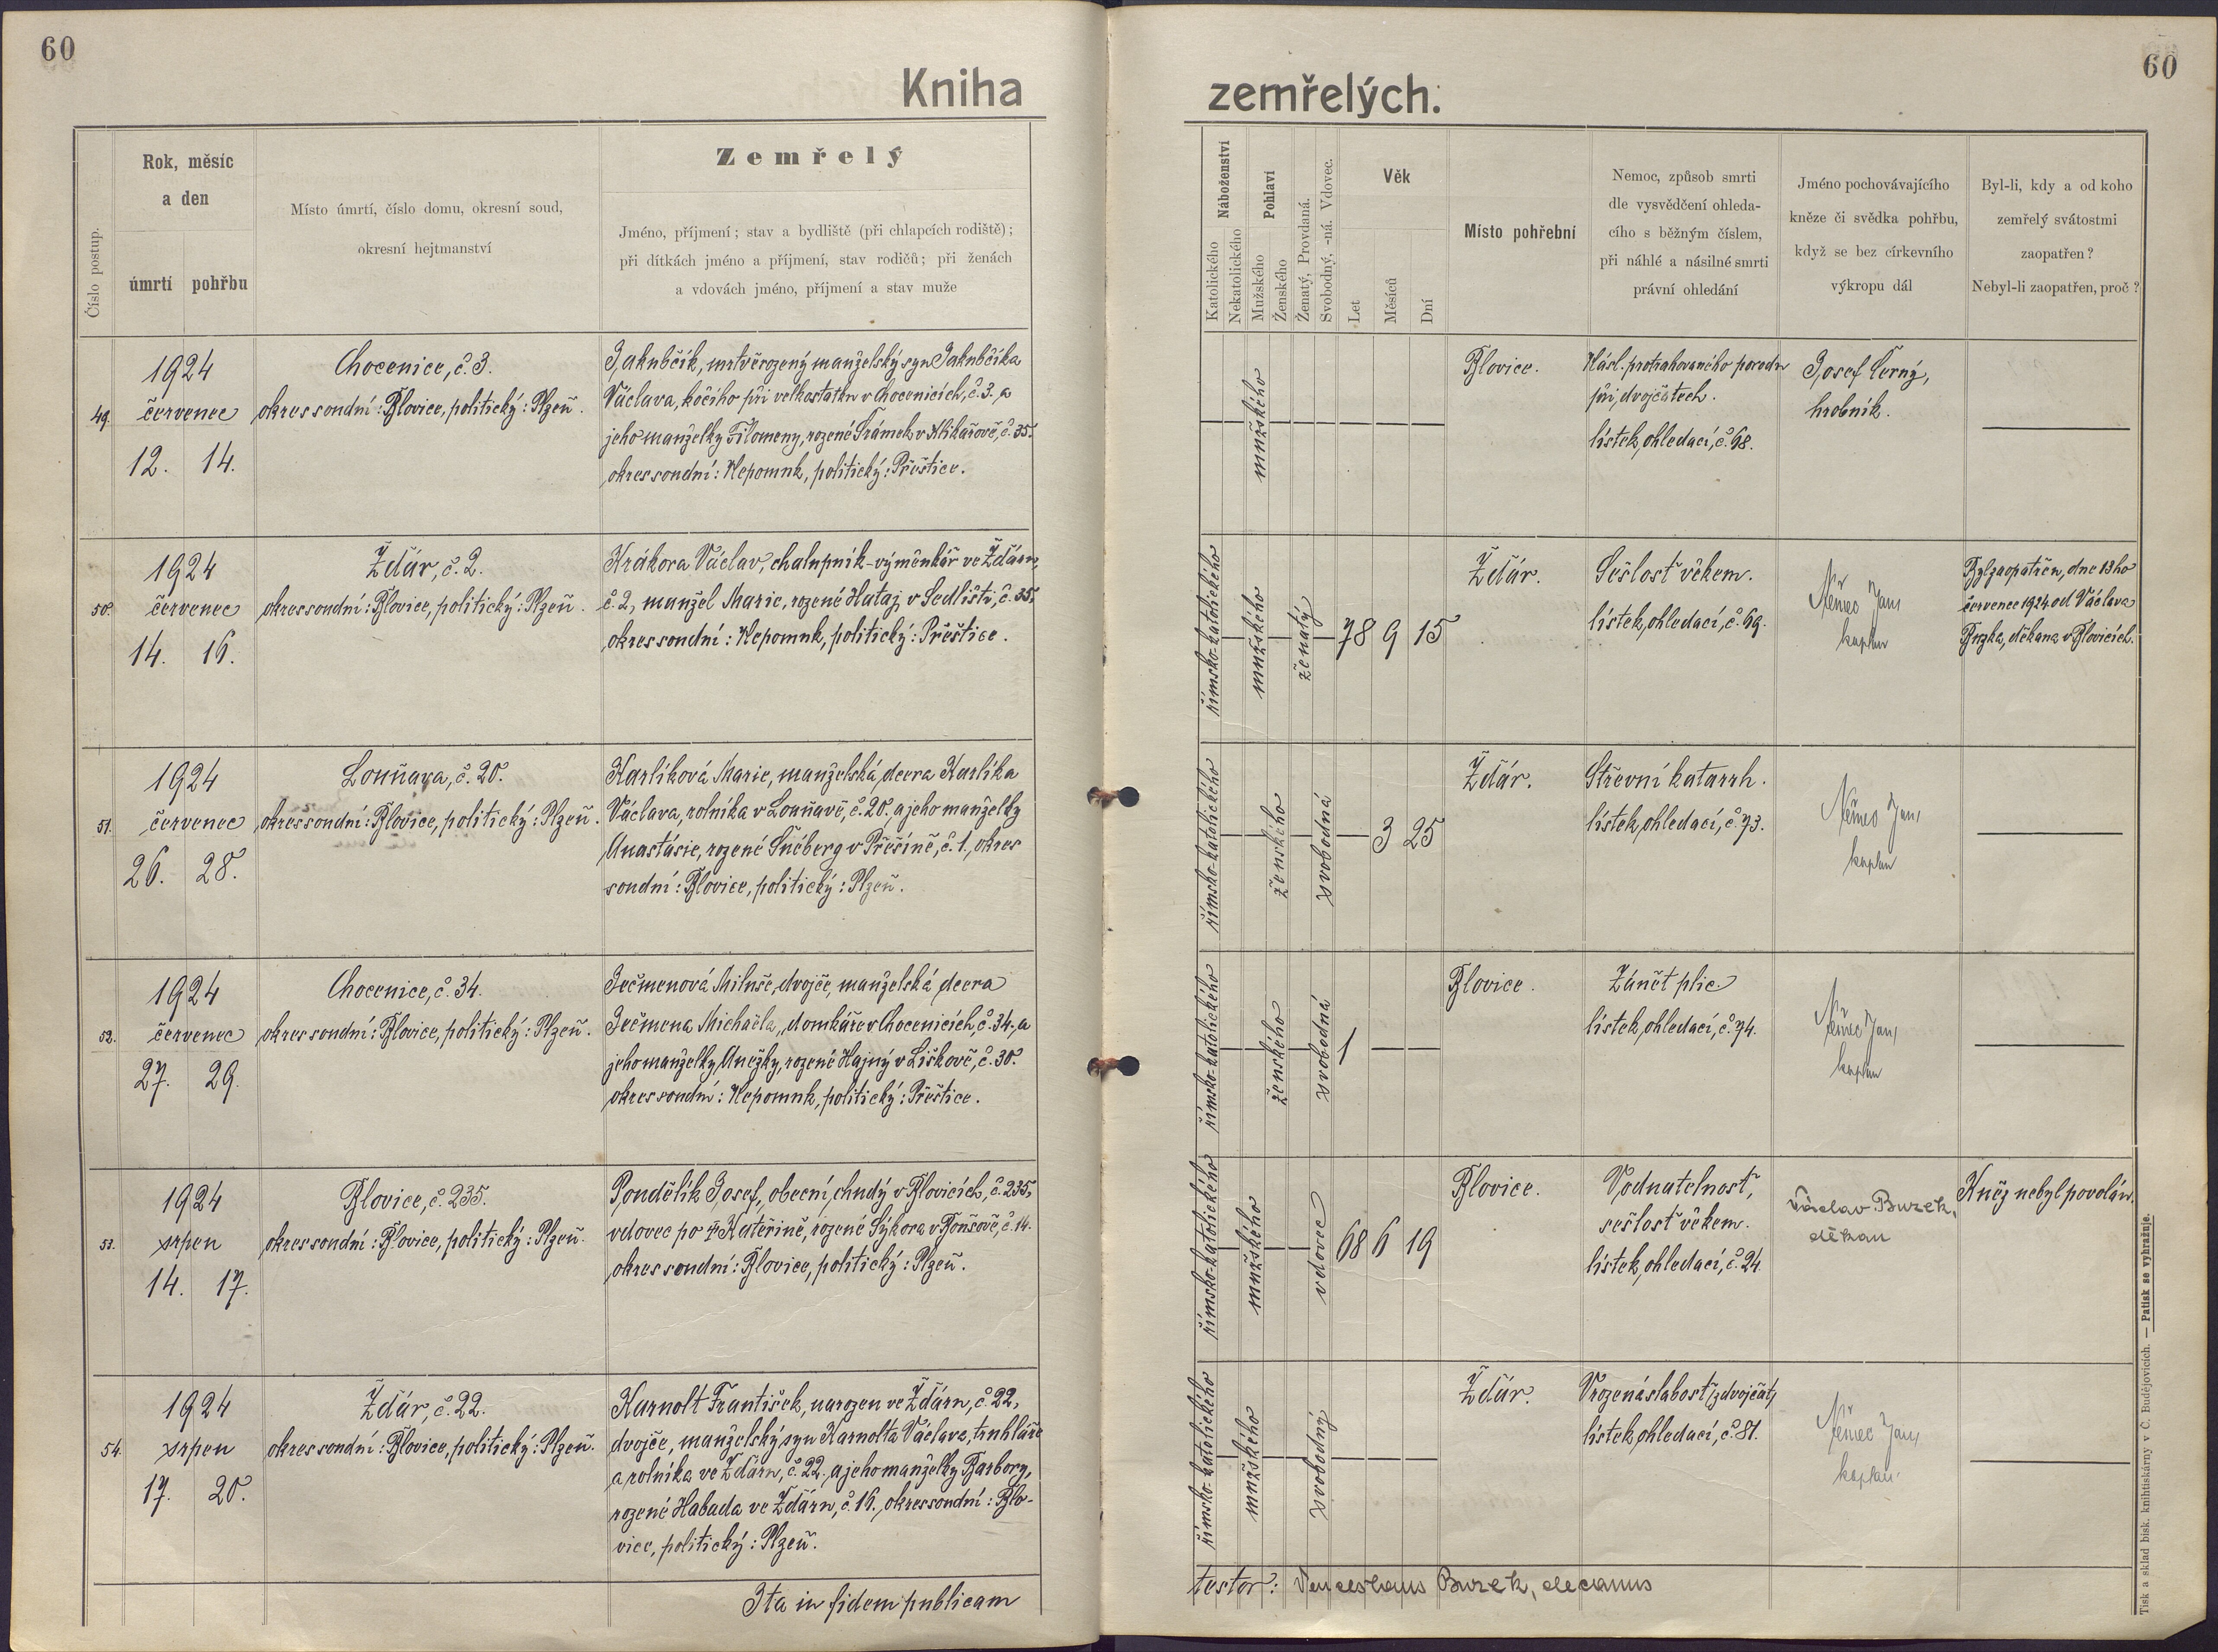 60
Kniha
Číslo postup.
Rok, měsíc
a den
úmrtí pohřbu
Místo úmrtí, číslo domu, okresní soud,
okresní hejtmanství
Zemřelý
Jméno, příjmení; stav a bydliště (při chlapcích rodiště);
při dítkách jméno a příjmení, stav rodičů; při ženách
a vdovách jméno, příjmení a stav muže
49.
1924
červenec
12. 14.
Chocenice, č. 3.
okres soudní: Blovice, politický: Plzeň.
Jakubčík, mrtvěrozený manželský syn Jakubčíka
Václava, kočího při velkostatku v Chocenicích, č. 3. a
jeho manželky Filomeny, rozené Šrámek v Klikařově, č. 35.
okres soudní: Nepomuk, politický: Přeštice.
50.
1924
červenec
14. 16.
Žďár, č. 2.
okres soudní: Blovice, politický: Plzeň.
Krákora Václav, chalupník-výměnkář ve Žďáru,
č. 2, manžel Marie, rozené Hataj v Sedlišti, č. 35,
okres soudní: Nepomuk, politický: Přeštice.
51.
1924
červenec
26. 28.
Louňava, č. 20.
okres soudní: Blovice, politický: Plzeň.
Karlíková Marie, manželská dcera Karlíka
Václava, rolníka v Louňavě, č. 20. a jeho manželky
Anastásie, rozené Šnéberg v Přešíně, č. 1., okres
soudní: Blovice, politický: Plzeň.
52.
1924
červenec
27. 29.
Chocenice, č. 34.
okres soudní: Blovice, politický: Plzeň.
Ječmenová Miluše, dvojče, manželská dcera
Ječmena Michaela, domkáře v Chocenicích, č. 34. a
jeho manželky Anežky, rozené Hajný v Liškově, č. 30.
okres soudní: Nepomuk, politický: Přeštice.
53.
1924
srpen
14. 17.
Blovice, č. 235.
okres soudní: Blovice, politický: Plzeň.
Pondělík Josef, obecní chudý v Blovicích, č. 235,
vdovec po † Kateřině, rozené Sýkora v Bonšově, č. 14.
okres soudní: Blovice, politický: Plzeň.
54.
1924
srpen
17. 20.
Žďár, č. 22.
okres soudní: Blovice, politický: Plzeň.
Karnolt František, narozen ve Žďáru, č. 22,
dvojče, manželský syn Karnolta Václava, truhláře
a rolníka ve Žďáru, č. 22. a jeho manželky Barbory,
rozené Habada ve Žďáru, č. 16., okres soudní: Blo-
vice, politický: Plzeň.
Ita in fidem publicam
60
zemřelých.
Náboženství
Katolického
Nekatolického
Pohlaví
Mužského
Ženského
Ženatý, Provdaná.
Svobodný, -ná. Vdovec.
Věk
Let
Měsíců
Dní
Místo pohřební
Nemoc, způsob smrti
dle vysvědčení ohleda-
cího s běžným číslem,
při náhlé a násilné smrti
právní ohledání
Jméno pochovávajícího
kněze či svědka pohřbu,
když se bez církevního
výkropu dál
Byl-li, kdy a od koho
zemřelý svátostmi
zaopatřen?
Nebyl-li zaopatřen, proč?
mužského
Blovice.
Násl. protrahovaného porodu
při dvojčatech.
lístek ohledací, č. 68.
Josef Černý,
hrobník.
římsko-katolického
mužského
ženatý
78 9 15
Žďár.
Sešlosť věkem.
lístek ohledací, č. 69.
Němec Jan,
kaplan
Byl zaopatřen, dne 13ho
července 1924 od Václava
Buzka, děkana v Blovicích.
římsko-katolického
ženského
svobodná
3 25
Žďár.
Střevní katarrh.
lístek ohledací, č. 73.
Němec Jan,
kaplan
římsko-katolického
ženského
svobodná
1
Blovice.
Zánět plic
lístek ohledací, č. 74.
Němec Jan,
kaplan
římsko-katolického
mužského
vdovec
68 6 19
Blovice.
Vodnatelnosť,
sešlosť věkem.
lístek ohledací, č. 24.
Václav Buzek,
děkan
Kněz nebyl povolán.
římsko-katolického
mužského
svobodný
Žďár.
Vrozená slabosť /z dvojčat/
lístek ohledací, č. 81.
Němec Jan,
kaplan
testor: Venceslaus Buzek, decanus
Tisk a sklad bisk. knihtiskárny v Č. Budějovicích. — Patisk se vyhražuje.